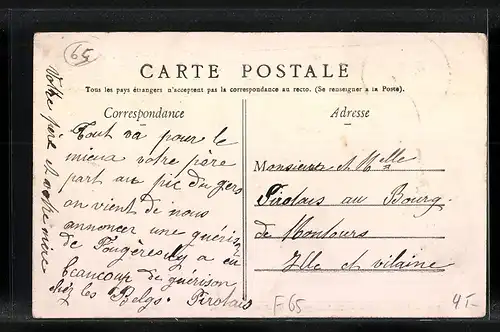 65
CARTE POSTALE
Tous les pays étrangers n'acceptent pas la correspondance au recto. (Se renseigner a la Poste).
Correspondance
Tout va pour le
mieux votre père
part au pic du gers
on vient de nous
annoncer une guérison
de Fougères il y a eu
beaucoup de guérison
chez les Belge. Pirotais
Votre père et votre mère
Adresse
Monsieur et Melle
Pirotais au Bourg
de Montours
Ille et vilaine
F65
4T-